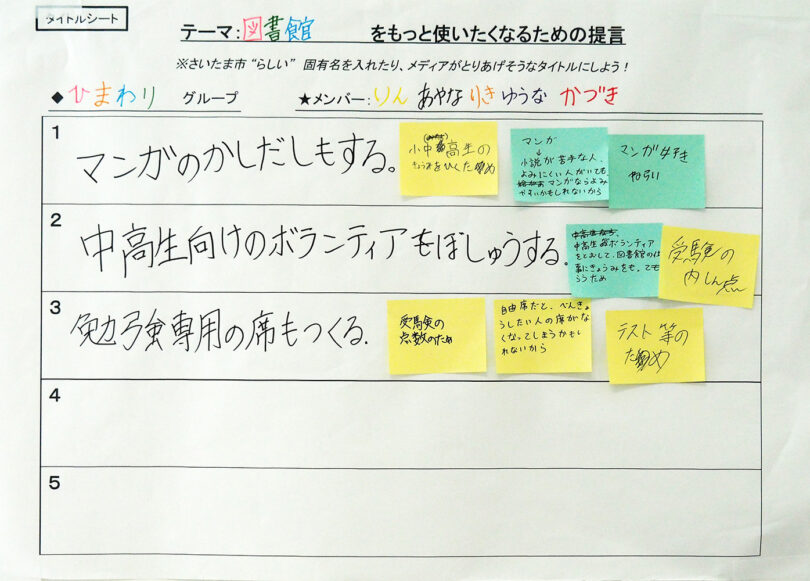 タイトルシート
テーマ:図書館 をもっと使いたくなるための提言
※さいたま市“らしい”固有名を入れたり、メディアがとりあげそうなタイトルにしよう!
◆ひまわり グループ ★メンバー:りん あやな りき ゆうな かづき
1
マンガのかしだしもする。
小中高生の
きょうみをひくため
マンガ
↓
小説が苦手な人、
よみにくい人がいても
マンガならよみ
やすいかもしれないから
マンガ好き
ねらい
2
中高生向けのボランティアもぼしゅうする。
中高生がボランティア
をとおして、図書館のは
事にきょうみをも。ても
らうため
受験の
内しん点
3
勉強専用の席もつくる.
受験の
点数のため
自由席だと、べんきょ
うしたい人の席がな
くなってしまうかもし
れないから
テスト等の
ため
4
5